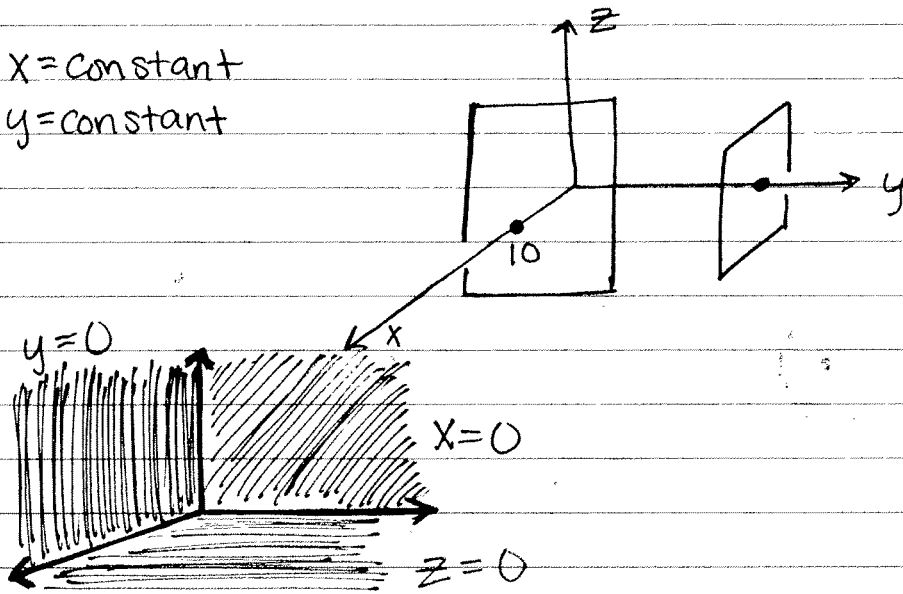 x = constant
y = constant
z
y
10
x
y = 0
x = 0
z = 0